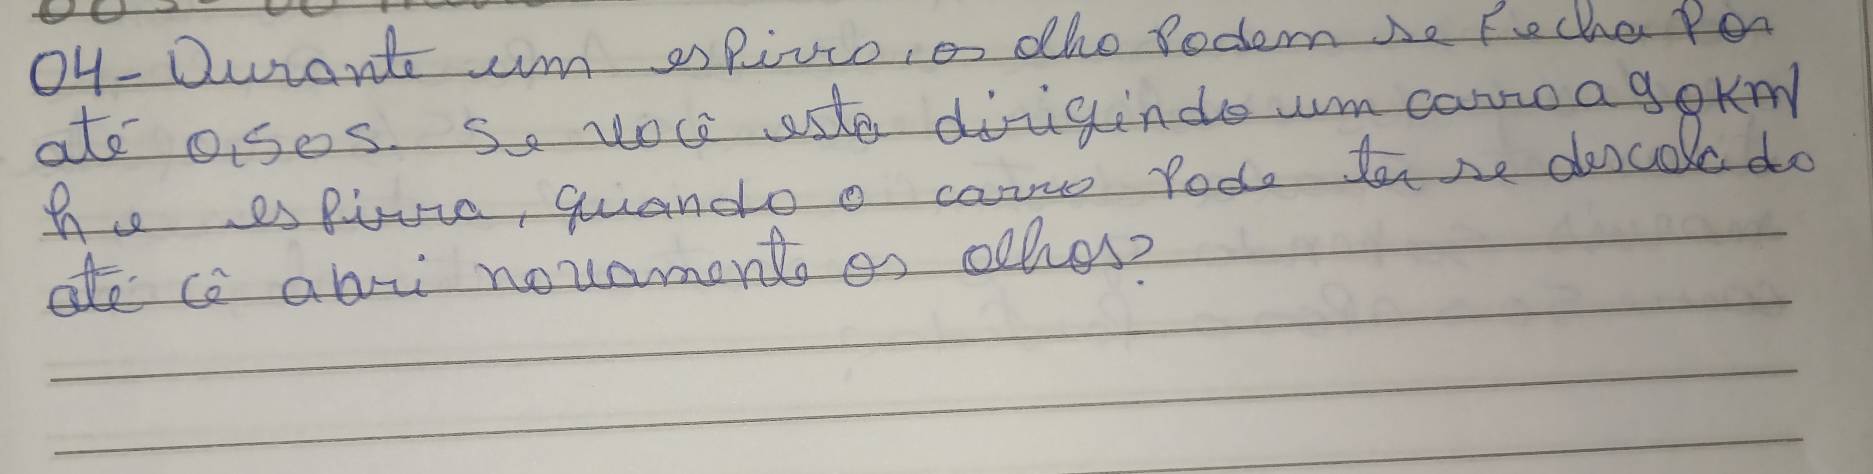 04- Durante um espirro, os olho Podem se Fecha Por
até 0,50s. Se você esta dirigindo um carro a 90Km/
h e espirra, quando o carro Pode ter se descolado
até cê abri novamente os olhos?